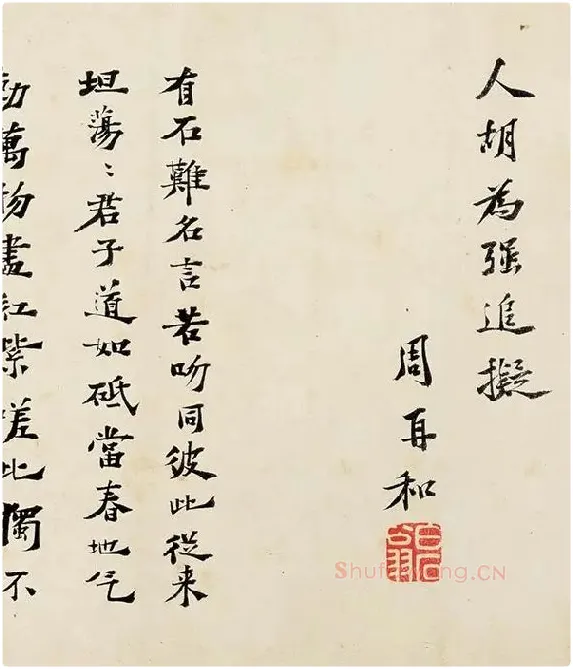 人胡為强追擬
周再和
有石難名言若吻同彼此從来
坦蕩〻君子道如砥當春地气
動萬物盡紅紫嗟此獨不
Shufa CN